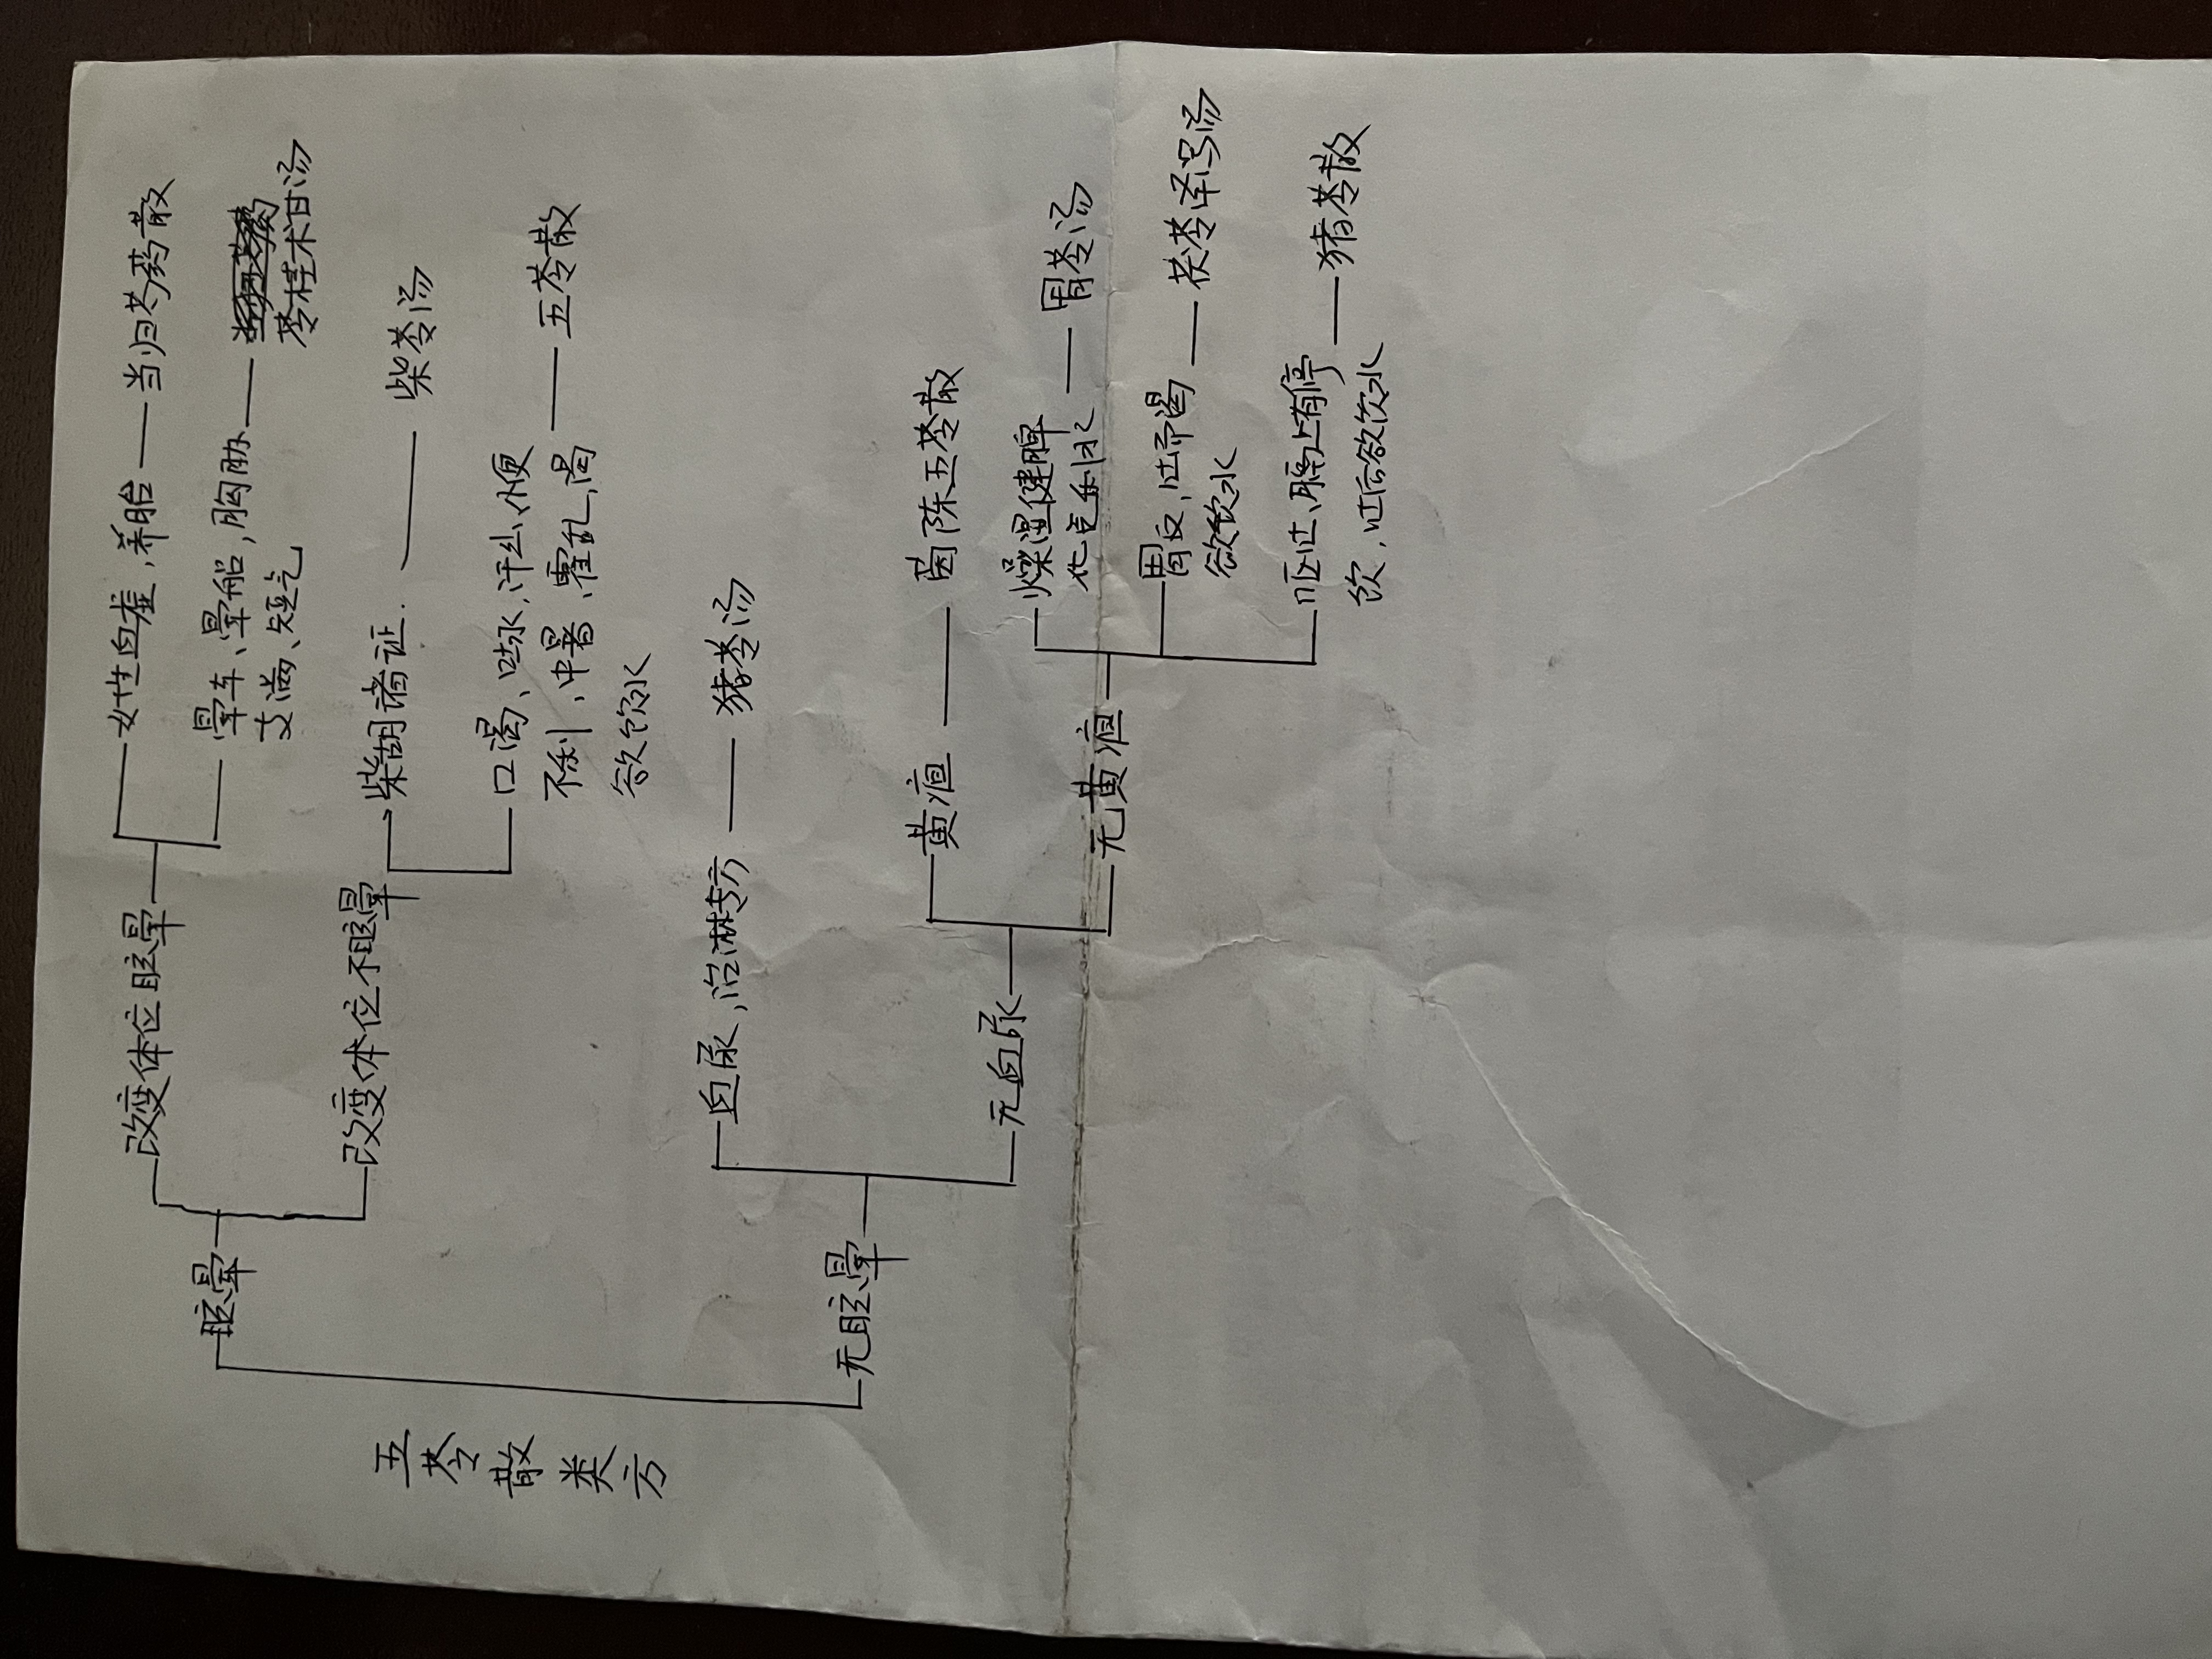 五苓散类方
眩晕
改变体位眩晕
女性血虚，养胎
当归芍药散
晕车、晕船，胸胁
支满、短气
苓桂术甘汤
改变体位不眩晕
柴胡诸证
柴苓汤
口渴、吐水，汗出，小便
不利，中暑、霍乱，渴
欲饮水
五苓散
无眩晕
血尿，治淋专方
猪苓汤
无血尿
黄疸
茵陈五苓散
无黄疸
燥湿健脾
化气利水
胃苓汤
胃反，吐而渴
欲饮水
茯苓泽泻汤
呕吐，膈上有停
饮，吐后欲饮水
猪苓散